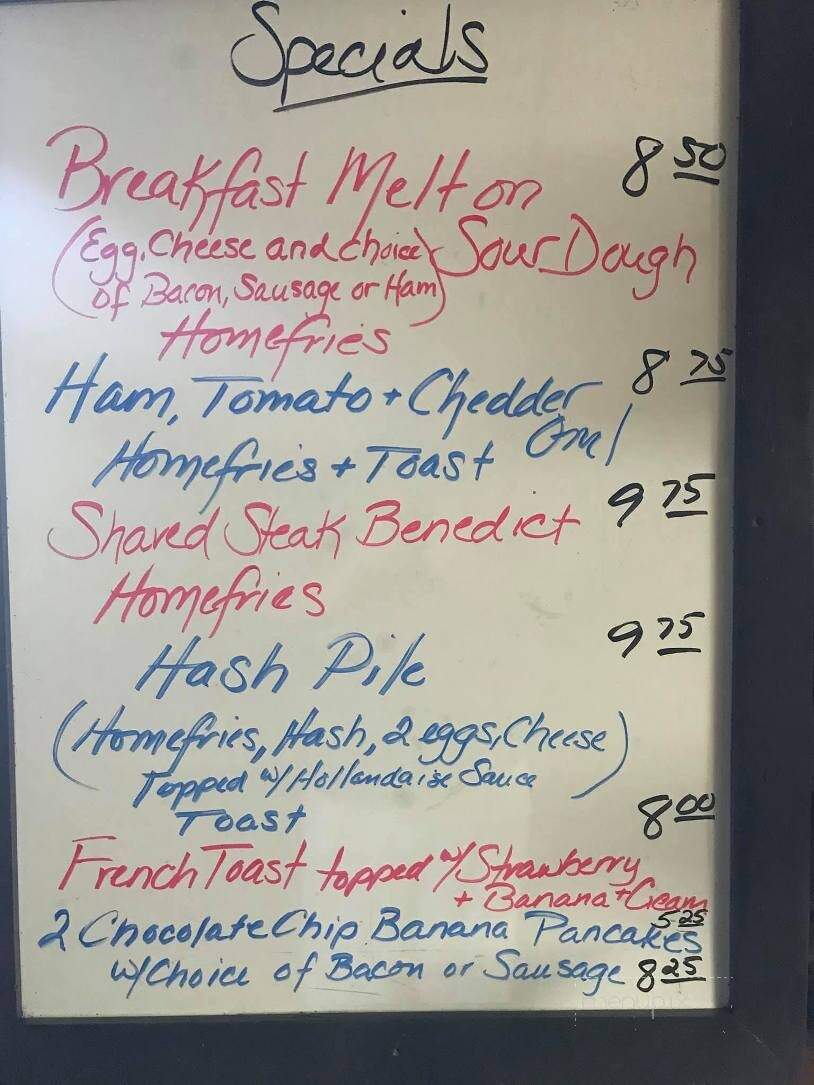 Specials
Breakfast Melt on 8 50
(Egg, Cheese and choice) Sour Dough
of Bacon, Sausage or Ham
Homefries
Ham, Tomato + Chedder 8 75
Oml
Homefries + Toast
Shaved Steak Benedict 9 75
Homefries
Hash Pile 9 75
(Homefries, Hash, 2 eggs, Cheese)
Topped w/ Hollandaise Sauce
Toast
French Toast topped w/ Strawberry 8 00
+ Banana + Cream
2 Chocolate Chip Banana Pancakes 5 25
w/ Choice of Bacon or Sausage 8 25
menupix